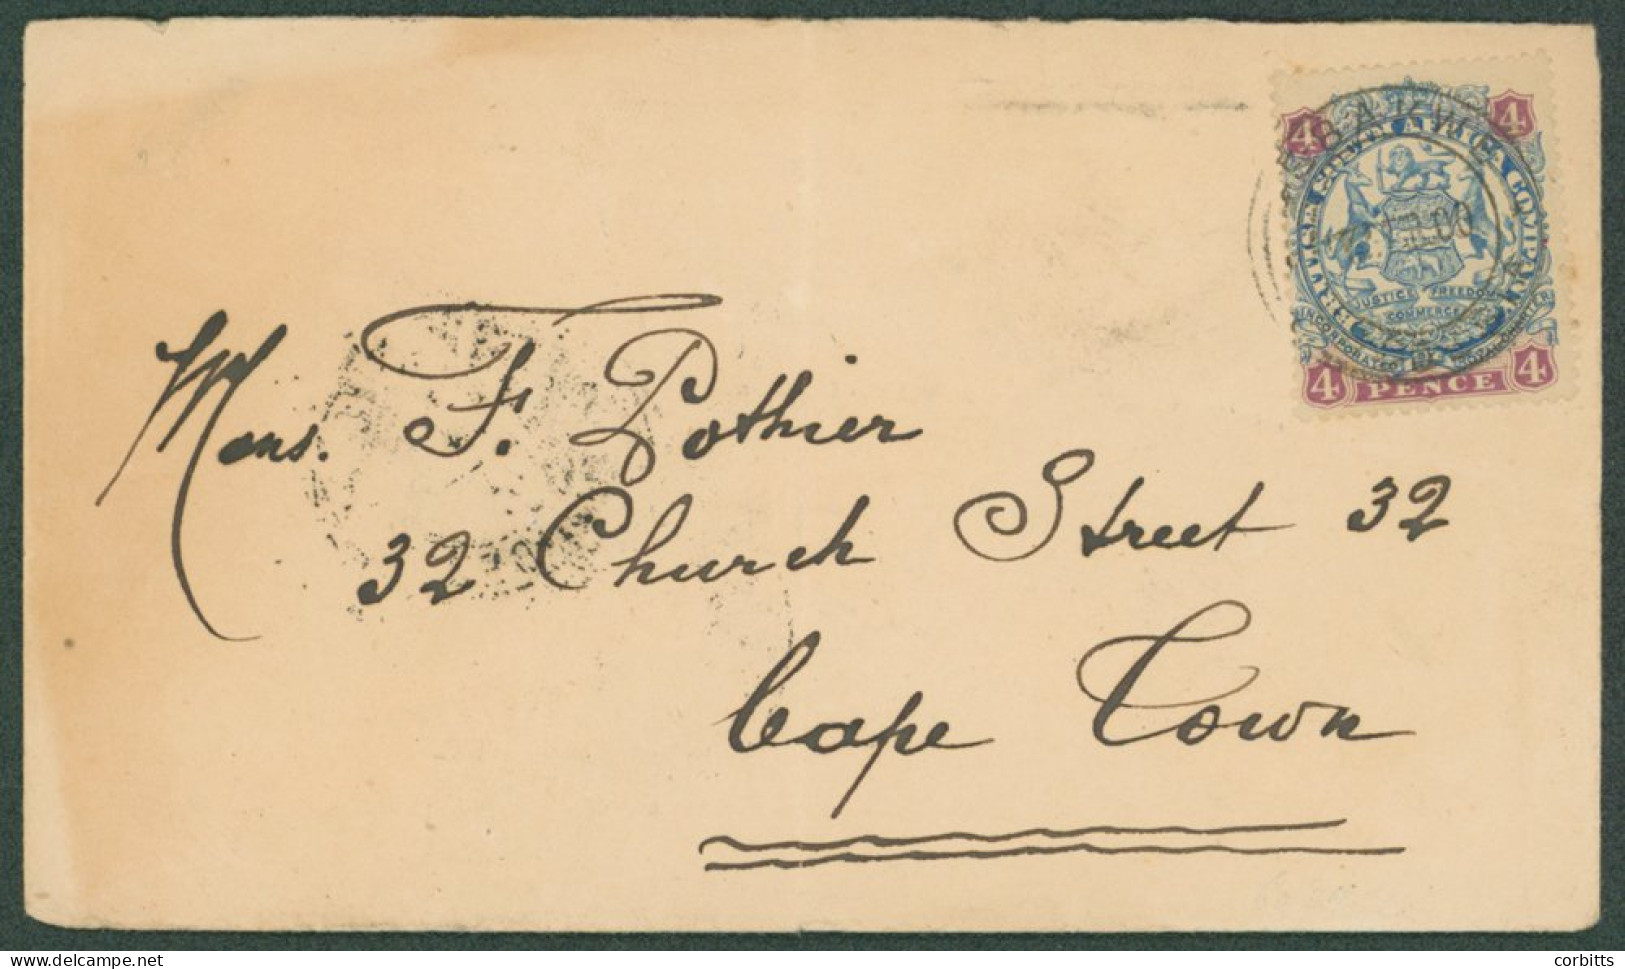 4 4
BRITISH SOUTH AFRICA COMPANY
JUSTICE FREEDOM
COMMERCE
INCORPORATED
4 PENCE 4
00
Mons. F. Pothier
32 Church Street 32
Cape Town
corbitts